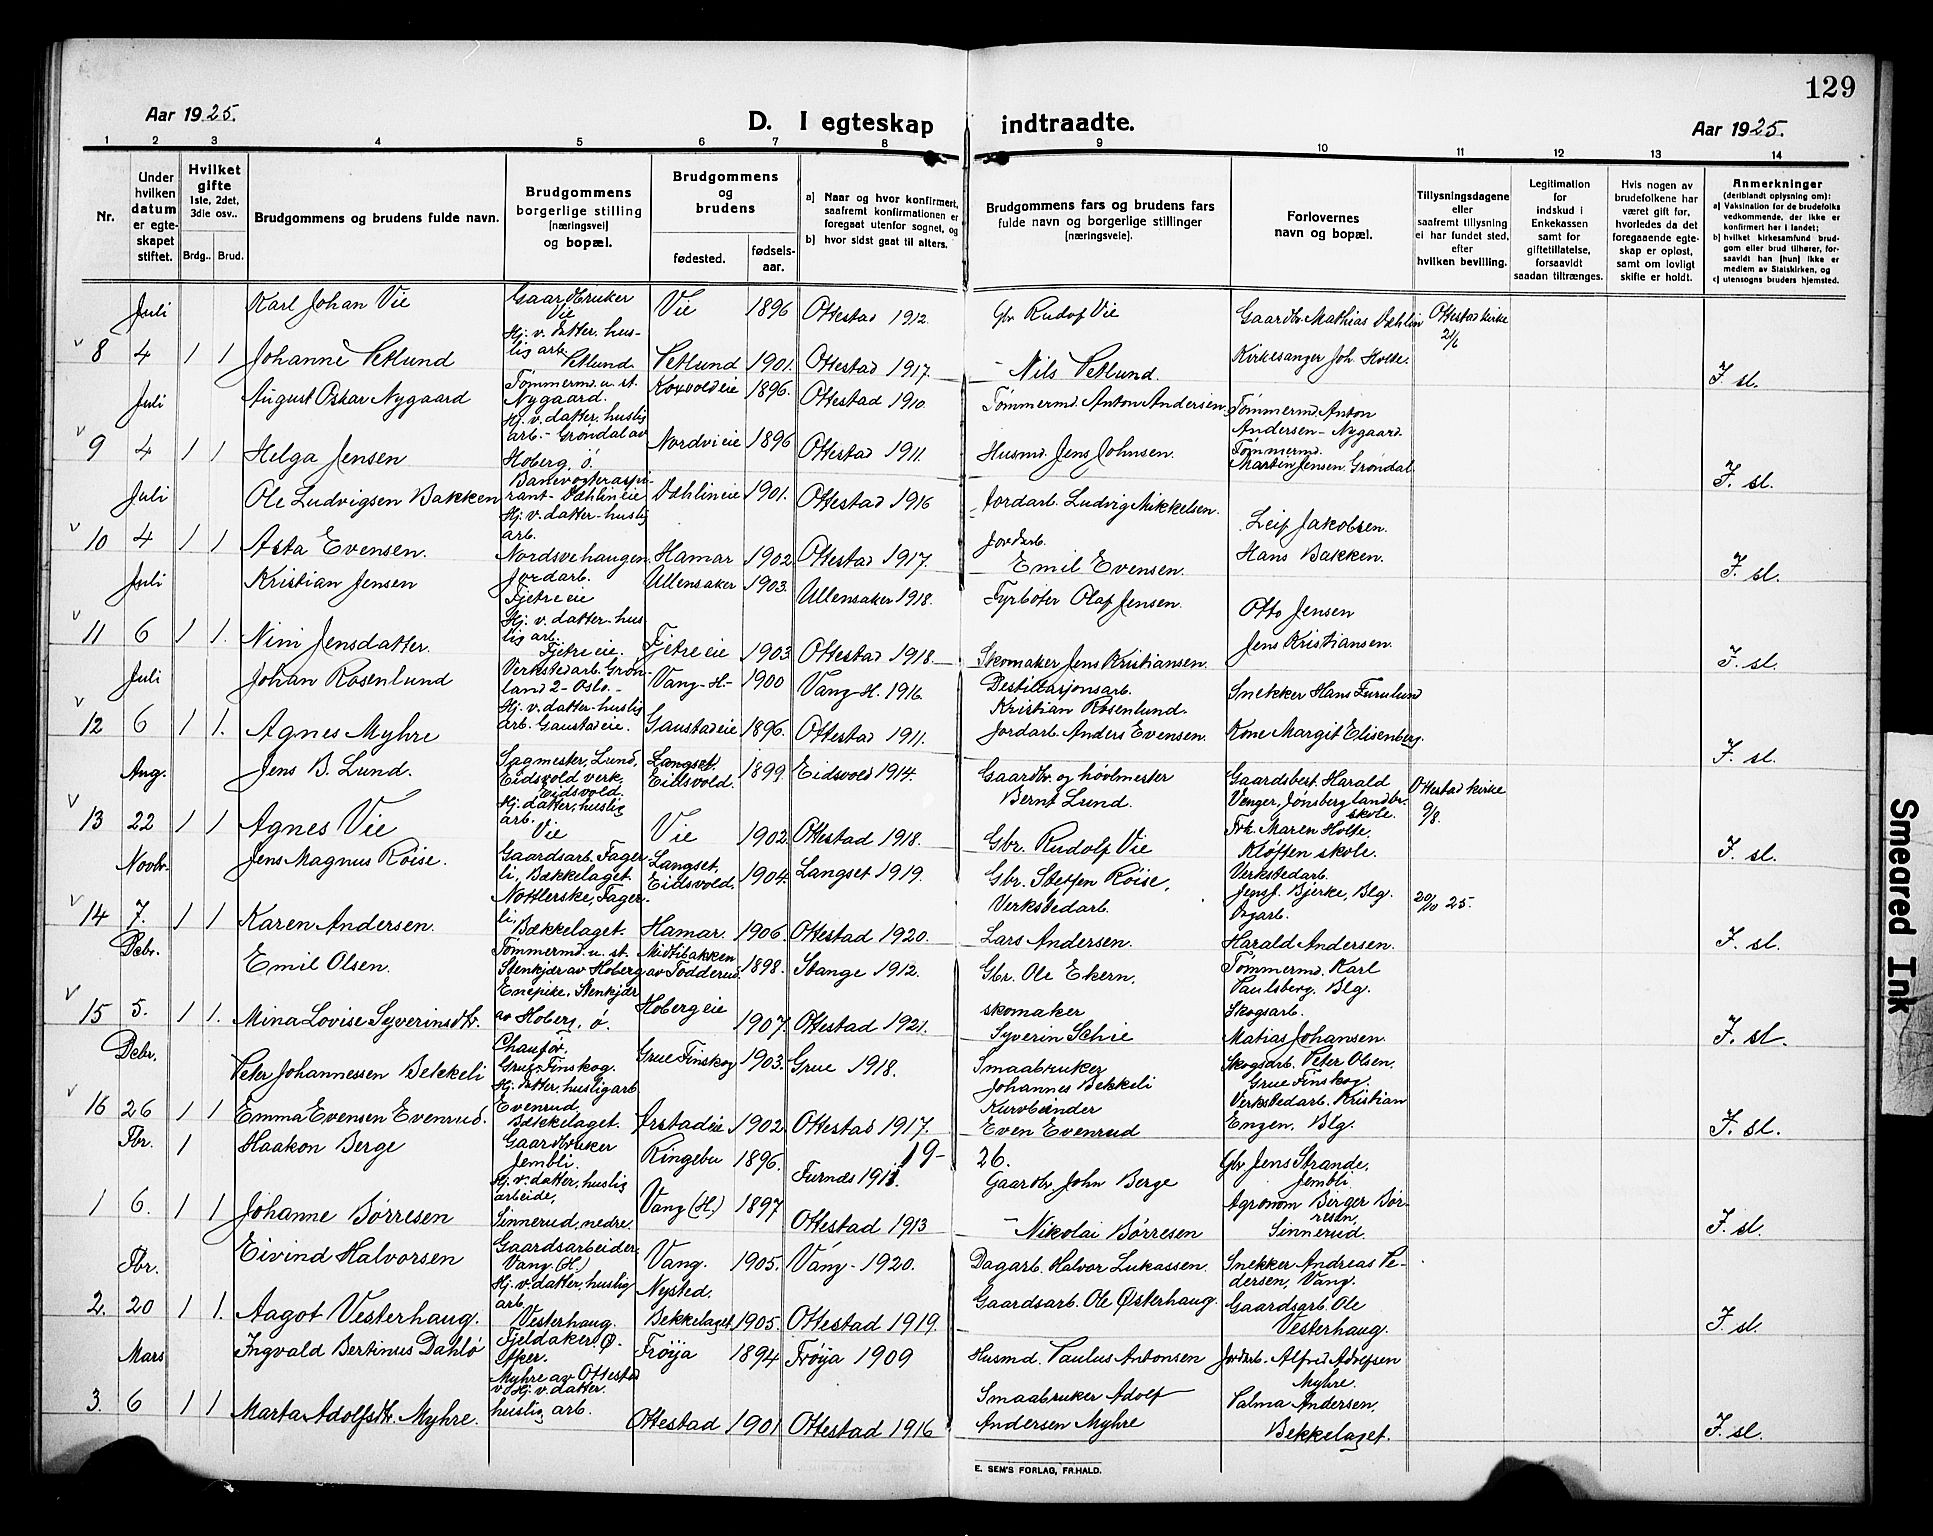 129
Aar 1925.
D. I egteskap indtraadte.
Aar 1925.
1 2 3 4 5 6 7 8 9 10 11 12 13 14
Nr.
Under hvilken datum er egteskapet stiftet.
Hvilket gifte 1ste, 2det, 3die osv..
Brdg.. Brud.
Brudgommens og brudens fulde navn.
Brudgommens borgerlige stilling (næringsvei) og bopæl.
Brudgommens og brudens
fødested. fødsels-aar.
a) Naar og hvor konfirmert, saafremt konfirmationen er foregaat utenfor sognet, og
b) hvor sidst gaat til alters.
Brudgommens fars og brudens fars fulde navn og borgerlige stillinger (næringsveie).
Forlovernes navn og bopæl.
Tillysningsdagene eller saafremt tillysning ei har fundet sted, efter hvilken bevilling.
Legitimation for indskud i Enkekassen samt for giftetillatelse, forsaavidt saadan tiltrænges.
Hvis nogen av brudefolkene har været gift før, hvorledes da det foregaaende egteskap er opløst, samt om lovligt skifte er holdt.
Anmerkninger (deriblandt oplysning om):
a) Vaksination for de brudefolks vedkommende, der ikke er konfirmert her i landet;
b) hvilket kirkesamfund brudgom eller brud tilhører, forsaavidt han (hun) ikke er medlem av Statskirken, og
c) utensogns bruders hjemsted.
Juli Karl Johan Vie Gaardbruker Vie Vie 1896 Ottestad 1912. Gbr Rudolf Vie Gaardbr Mathias Dæhlin Ottestad kirke 21/6
8 4 1 1 Johanne Vetlund Hj. v. datter. huslig arb. Vetlund Vetlund 1901. Ottestad 1917. – Nils Vetlund. Kirkesanger Joh. Holte. F. sl.
Juli August Oskar Nygaard Tømmermd. u. st. Nygaard. 1896. Ottestad 1910. Tømmermd. Anton Andersen Tømmermd Anton Andersen – Nygaard.
9 4 1 1 Helga Jensen Hj. v. datter. huslig arb. – Grøndal av Hoberg, ø. Nordvi eie 1896 Ottestad 1911. Husmd. Jens Johnsen. Tømmermd. Martin Jensen Grøndal. F. sl.
Juli Ole Ludvigsen Bakken Banevogteraspirant – Dæhlin eie Dæhlin eie 1901. Ottestad 1916 Jordarb. Ludvig Mikkelsen. Leif Jakobsen.
10 4 1 1 Asta Evensen. Hj. v. datter – huslig arb. Nordsvehaugen Hamar 1902 Ottestad 1917. Jordarb. Emil Evensen. Hans Bakken. F. sl.
Juli Kristian Jensen Jordarb. Tjetre eie Ullensaker 1903. Ullensaker 1918. Fyrbøter Olaf Jensen. Otto Jensen
11 6 1 1. Nini Jensdatter. Hj. v. datter – huslig arb. Tjetre eie. Tjetre eie 1903. Ottestad 1918. Skomaker Jens Kristiansen. Jens Kristiansen. F. sl.
Juli Johan Rosenlund Verkstedarb. Grønland 2 – Oslo. – Vang – H. – 1900 Vang – H. 1916 Destillasjonsarb. Kristian Rosenlund. Snekker Hans Furulund
12 6 1 1. Agnes Myhre Hj. v. datter – huslig arb. Gaustad eie. Gaustad eie 1896. Ottestad 1911. Jordarb. Anders Evensen. Kone Margit Elisenberg. F. sl.
Aug. Jens B. Lund. Sagmester, Lund, Eidsvold verk, Eidsvold. Langset. Eidsvold. 1899. Eidsvold 1914. Gaardbr. og høvlmester Bernt Lund. Gaardsbest. Harald Venger, Jønsberg landbr. skole. Ottestad kirke 9/8.
13 22 1 1 Agnes Vie Hj. datter, huslig arb. Vie Vie 1902. Ottestad 1918. Gbr. Rudolf Vie Frk. Maren Holte, Kløften skole. F. sl.
Novbr. Jens Magnus Røise. Gaardsarb. Fagerli, Bækkelaget. Langset, Eidsvold. 1904. Langset 1919. Gbr. Steffen Røise, Verkstedarb. Jens J. Bjerke, Blg. 20/10 25.
14 7. 1 1 Karen Andersen. Fagerli, Bækkelaget. Hamar. 1906. Ottestad 1920. Verkstedarb. Lars Andersen. Harald Andersen. F. sl.
Decbr. Emil Olsen. Tømmermd. u. st. Stenkjær av Hoberg Midtibakken av Todderud 1898. Stange 1912. Gbr. Ole Ekern, Tømmermd. Karl Paulsberg, Blg.
15 5. 1 1. Mina Lovise Syverinsdtr. Enepike. Stenkjær av Hoberg, ø. Hoberg eie 1907. Ottestad 1921. skomaker Syverin Schie Skogsarb. Matias Johansen. F. sl.
Decbr. Peter Johannessen Bekkeli Chauffør. Grue Finskog. Grue Finskog 1903. Grue 1918. Smaabruker Johannes Bekkeli Skogsarb. Peter Olsen, Grue Finskog.
16 26 1 1 Emma Evensen Evenrud. Hj. datter, huslig arb Evenrud, Bækkelaget. Ørstad eie 1902 Ottestad 1917. Kurvbinder Even Evenrud Verkstedarb. Kristian Engen, Blg. F. sl.
19 – 26.
Fbr. 1 Haakon Berge Gaardbruker Jembli. Ringebu 1896. Furnes 1911. Gaardbr John Berge Gbr. Jens Strande, Jembli.
1 6. 1 1 Johanne Børresen Hj. v. datter, huslig arbeide, Sinnerud, nedre. Vang (H.) 1897 Ottestad 1913 – Nikolai Børresen Agronom Birger Børresen, Sinnerud. F. sl.
Fbr. Eivind Halvorsen Gaardsarbeider Vang (H.) Vang. 1905. Vang – 1920. Dagarb. Halvor Lukassen. Snekker Andreas Pedersen, Vang.
2. 20 1 1. Aagot Vesterhaug. Hj. v. datter, huslig arb. Vesterhaug. Nysted, Bekkelaget 1905. Ottestad 1919. Gaardsarb. Ole Østerhaug. Gaardsarb. Ole Vesterhaug. F. sl.
Mars Ingvald Bertinus Dahlø Fjeldaker. Ø. Aker. Frøya 1894 Frøya 1909 Husmd. Paulus Antonsen Jordarb. Alfred Adolfsen Myhre.
3. 6 1 1 Marta Adolfsdtr. Myhre. Myhre av Ottestad Hj. v. datter. huslig arb. Ottestad 1901 Ottestad 1916 Smaabruker Adolf Andersen Myhre Valma Andersen, Bekkelaget. F. sl.
E. SEM'S FORLAG, FR.HALD.
Smeared Ink